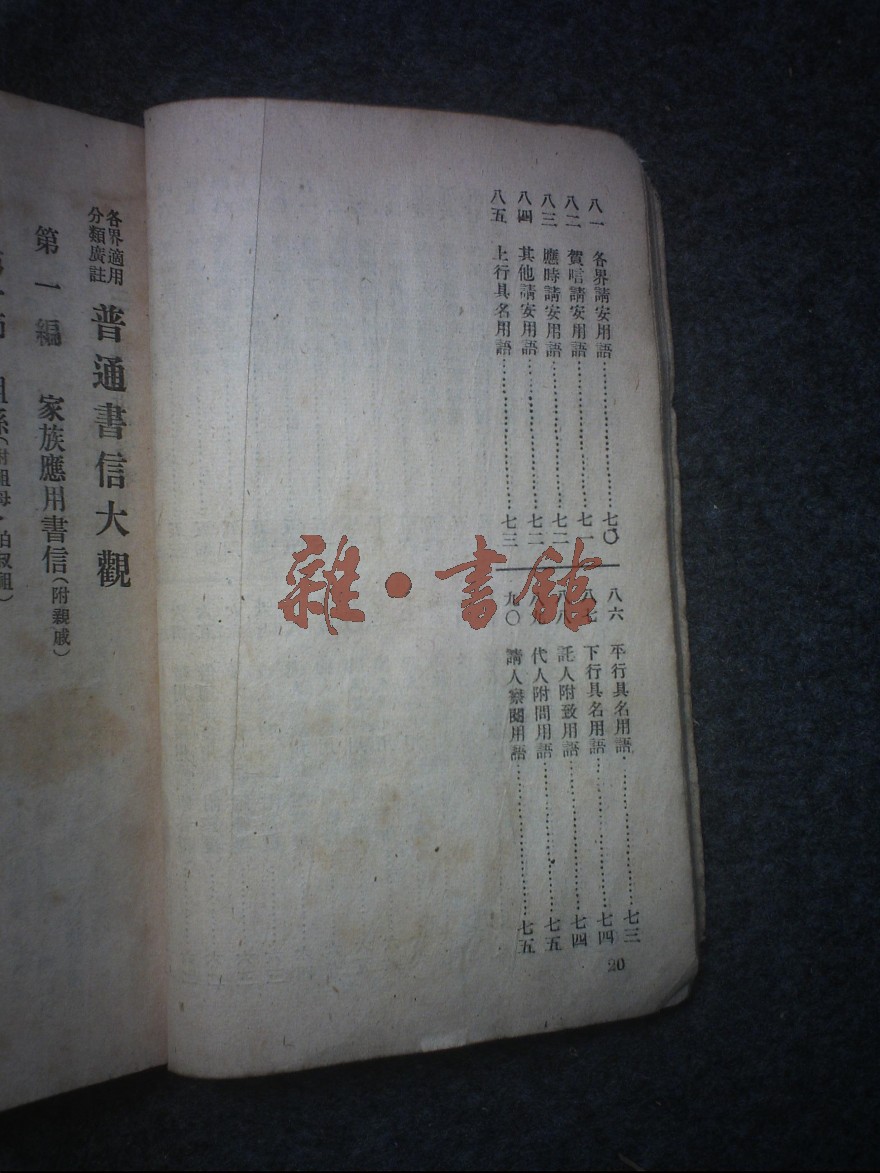 八一 各界請安用語 七〇
八二 賀唁請安用語 七一
八三 應時請安用語 七二
八四 其他請安用語 七二
八五 上行具名用語 七三
八六 平行具名用語 七三
八七 下行具名用語 七四
八八 託人附致用語 七四
八九 代人附問用語 七五
九〇 請人察閱用語 七五
20
雜·書館
各界適用
分類廣註
普通書信大觀
第一編 家族應用書信(附親戚)
祖孫(附祖母·伯叔祖)